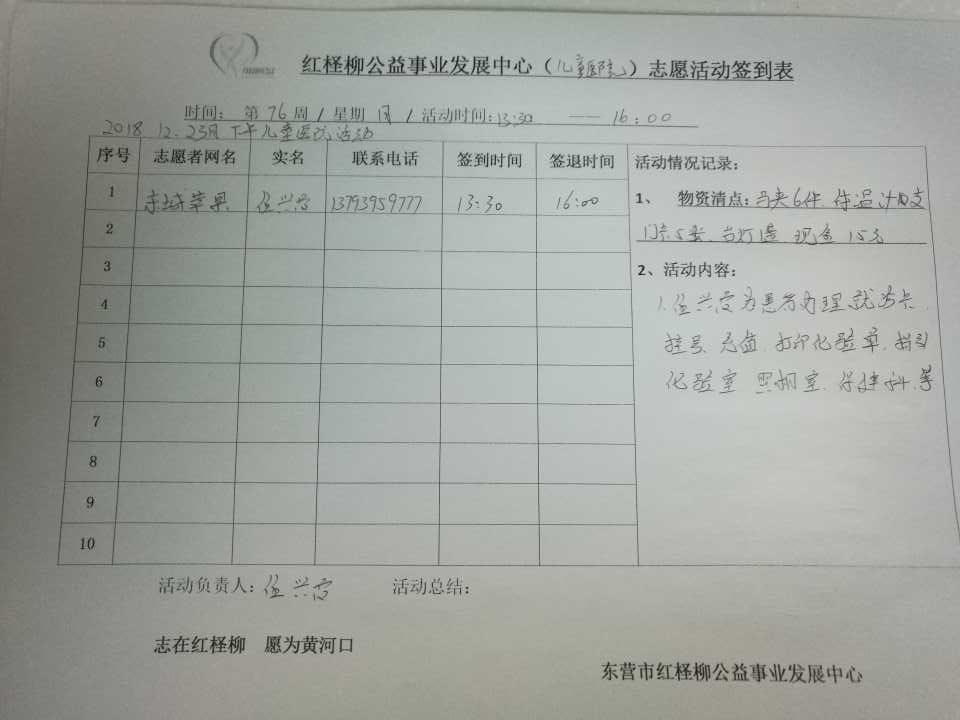 红柽柳公益事业发展中心（儿童医院）志愿活动签到表
时间：第76周/星期 日 /活动时间：13:30 —— 16:00
2018 12.23日下午儿童医院活动
序号 志愿者网名 实名 联系电话 签到时间 签退时间 活动情况记录：
1 东城苹果 伍兴 13793959777 13:30 16:00
1、 物资清点：马夹6件 体温计10支
现金 15元
2
3
2、活动内容：
4
1. 伍兴 为患者办理就诊卡
5
挂号、充值、打印化验单、指引
6
化验室 照相室、保健科、等
7
8
9
10
活动负责人：伍兴 活动总结：
志在红柽柳 愿为黄河口
东营市红柽柳公益事业发展中心